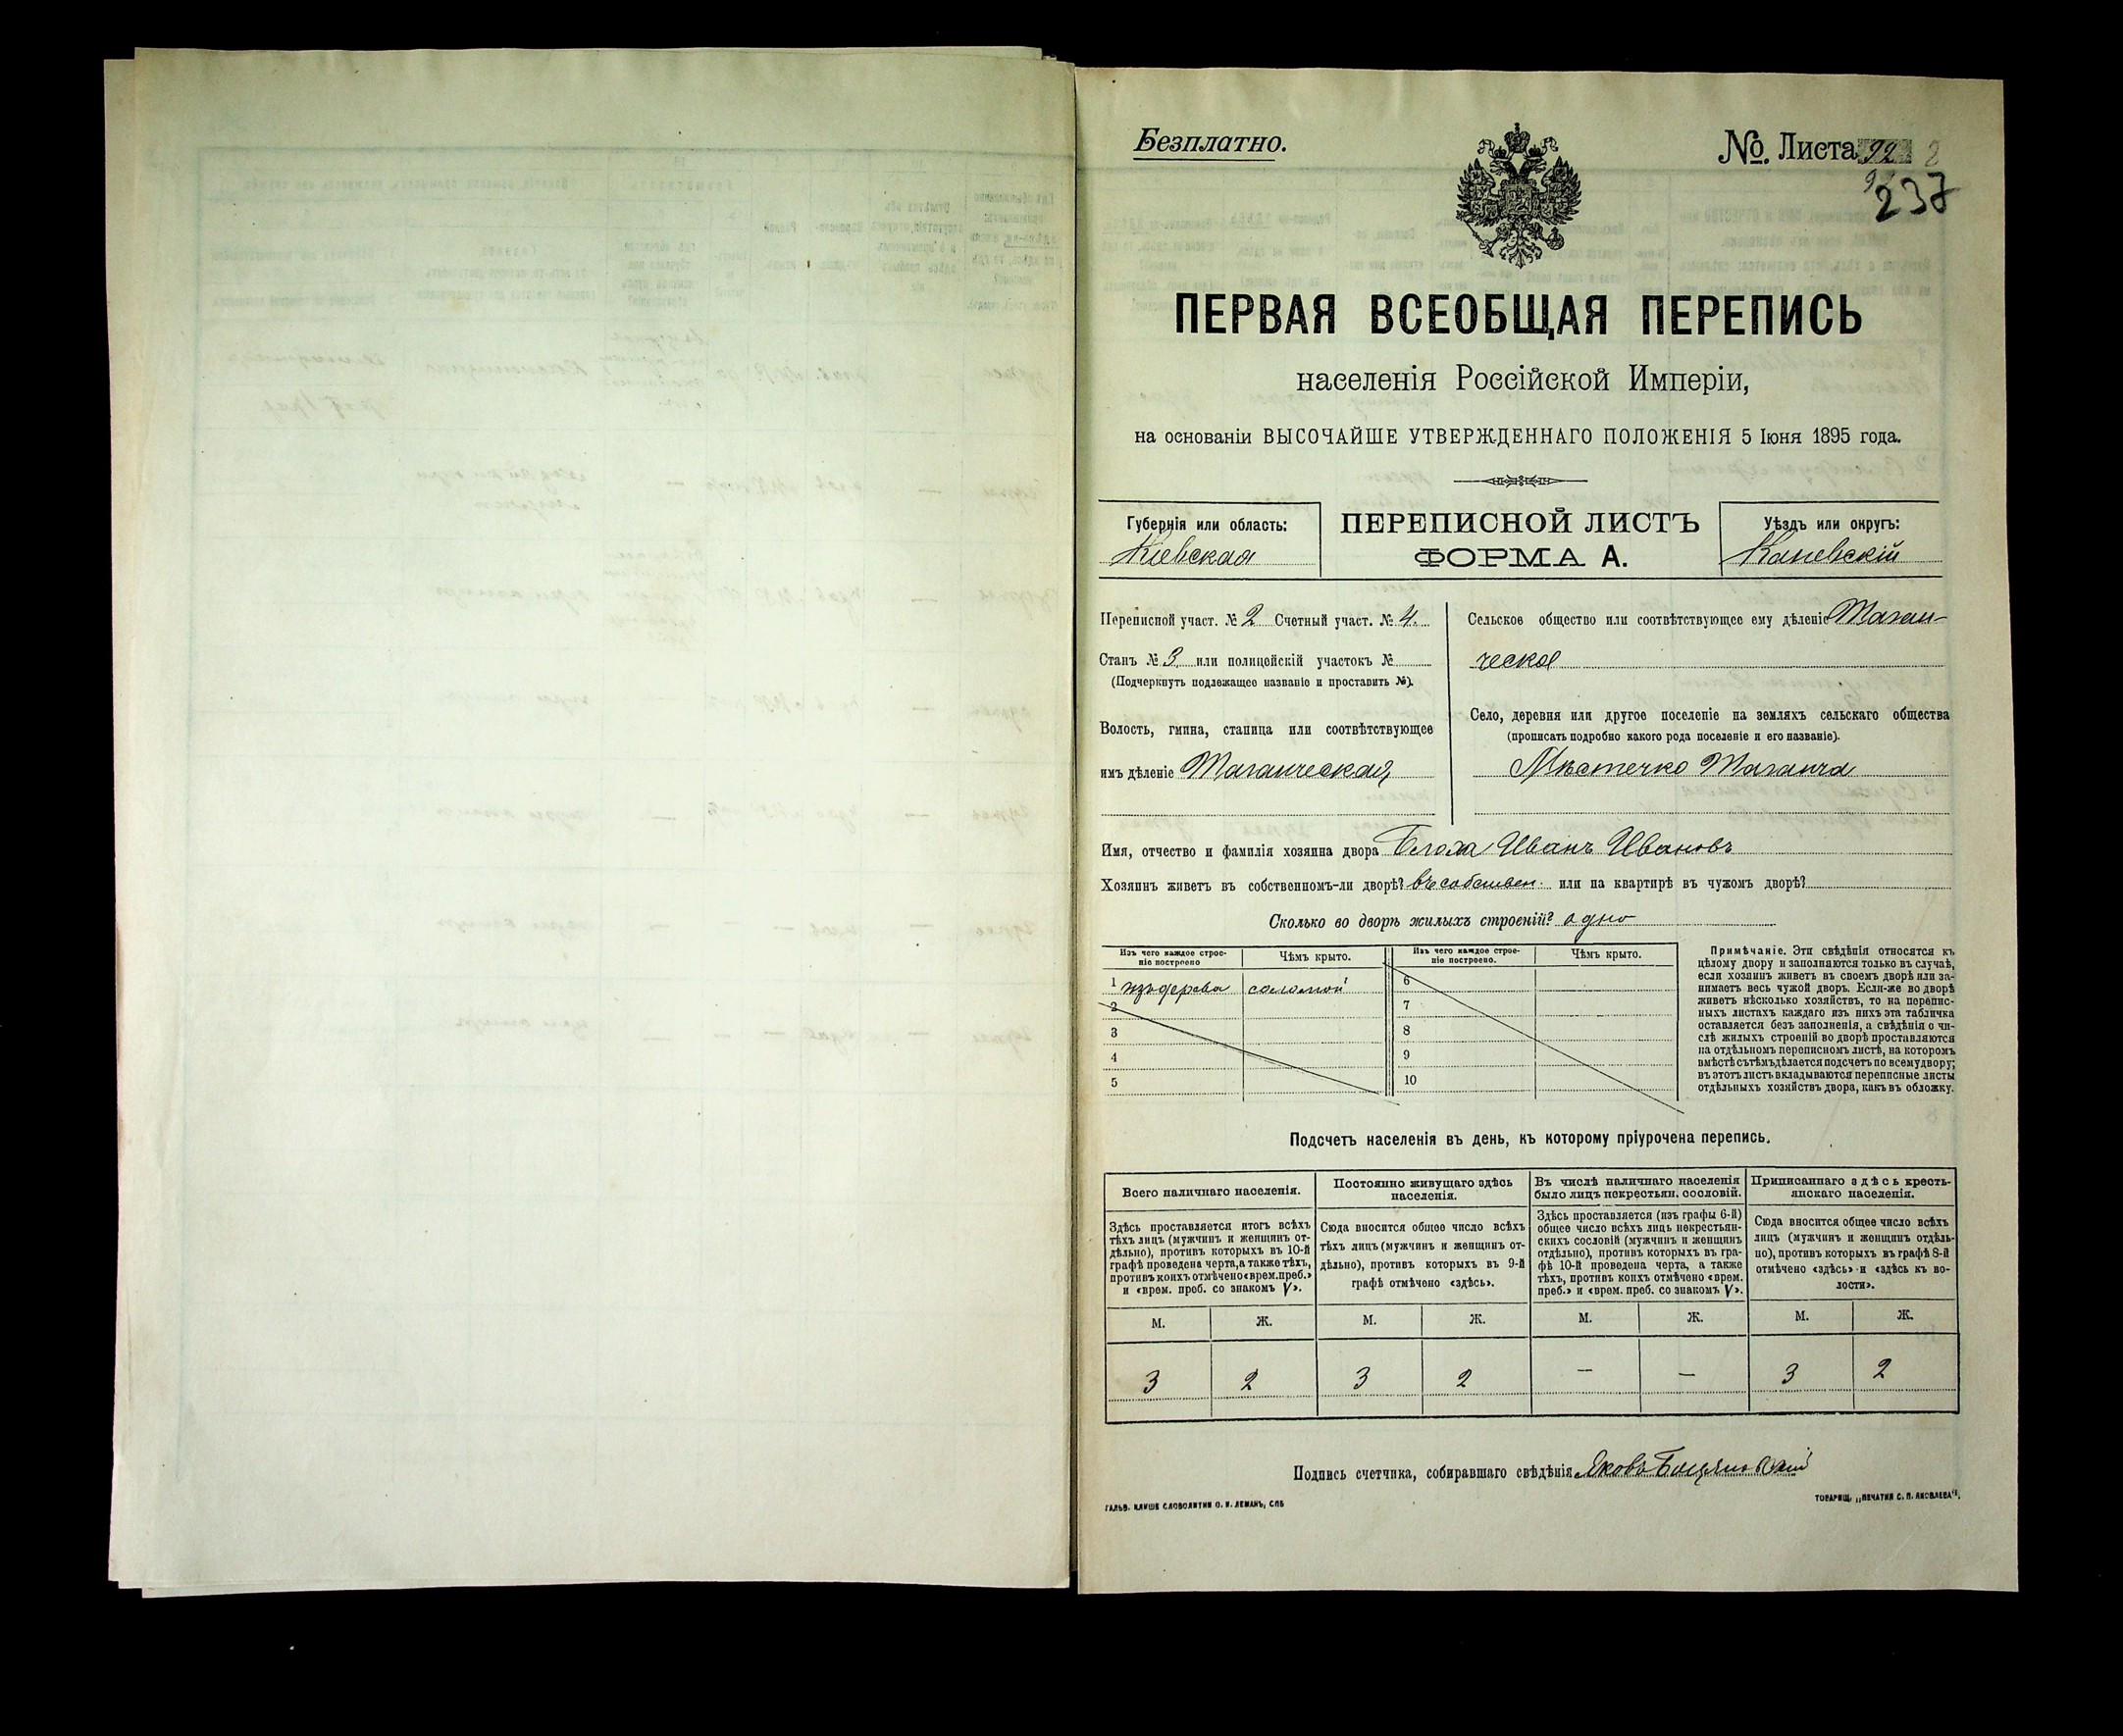 Безплатно.
№. Листа 92
237
ПЕРВАЯ ВСЕОБЩАЯ ПЕРЕПИСЬ
населенія Россійской Имперіи,
на основаніи ВЫСОЧАЙШЕ УТВЕРЖДЕННАГО ПОЛОЖЕНІЯ 5 Іюня 1895 года.
Губернія или область:
Кіевская
ПЕРЕПИСНОЙ ЛИСТЪ
ФОРМА А.
Уѣздъ или округъ:
Каневскій
Переписной участ. № 2 Счетный участ. № 4.
Станъ № 3 или полицейскій участокъ №
(Подчеркнуть подлежащее названіе и проставить №).
Волость, гмина, станица или соотвѣтствующее
имъ дѣленіе Таганческая
Сельское общество или соотвѣтствующее ему дѣленіе Таган-
ческое
Село, деревня или другое поселеніе на земляхъ сельскаго общества
(прописать подробно какого рода поселеніе и его названіе).
Мѣстечко Таганча
Имя, отчество и фамилія хозяина двора Блоха Иванъ Ивановъ
Хозяинъ живетъ въ собственномъ-ли дворѣ? въ собствен. или на квартирѣ въ чужомъ дворѣ?
Сколько во дворѣ жилыхъ строеній? одно
Изъ чего каждое строе-
ніе построено
Чѣмъ крыто.
Изъ чего каждое строе-
ніе построено.
Чѣмъ крыто.
1 изъ дерева соломой
2
3
4
5
6
7
8
9
10
Примѣчаніе. Эти свѣдѣнія относятся къ
цѣлому двору и заполняются только въ случаѣ,
если хозяинъ живетъ въ своемъ дворѣ или за-
нимаетъ весь чужой дворъ. Если-же во дворѣ
живетъ нѣсколько хозяйствъ, то на перепис-
ныхъ листахъ каждаго изъ нихъ эта табличка
оставляется безъ заполненія, а свѣдѣнія о чи-
слѣ жилыхъ строеній во дворѣ проставляются
на отдѣльномъ переписномъ листѣ, на которомъ
вмѣстѣ съ тѣмъ дѣлается подсчетъ по всему двору;
въ этотъ листъ вкладываются переписные листы
отдѣльныхъ хозяйствъ двора, какъ въ обложку.
Подсчетъ населенія въ день, къ которому пріурочена перепись.
Всего наличнаго населенія.
Постоянно живущаго здѣсь
населенія.
Въ числѣ наличнаго населенія
было лицъ некрестьян. сословій.
Приписаннаго здѣсь кресть-
янскаго населенія.
Здѣсь проставляется итогъ всѣхъ
тѣхъ лицъ (мужчинъ и женщинъ от-
дѣльно), противъ которыхъ въ 10-й
графѣ проведена черта, а также тѣхъ,
противъ коихъ отмѣчено «врем. преб.»
и «врем. преб. со знакомъ V».
Сюда вносится общее число всѣхъ
тѣхъ лицъ (мужчинъ и женщинъ от-
дѣльно), противъ которыхъ въ 9-й
графѣ отмѣчено «здѣсь».
Здѣсь проставляется (изъ графы 6-й)
общее число всѣхъ лицъ некрестьян-
скихъ сословій (мужчинъ и женщинъ
отдѣльно), противъ которыхъ въ гра-
фѣ 10-й проведена черта, а также
тѣхъ, противъ коихъ отмѣчено «врем.
преб.» и «врем. преб. со знакомъ V».
Сюда вносится общее число всѣхъ
лицъ (мужчинъ и женщинъ отдѣль-
но), противъ которыхъ въ графѣ 8-й
отмѣчено «здѣсь» и «здѣсь къ во-
лости».
М. Ж. М. Ж. М. Ж. М. Ж.
3 2 3 2 — — 3 2
Подпись счетчика, собиравшаго свѣдѣнія Яковъ
ГАЛЬВ. КЛИШЕ СЛОВОЛИТНИ О. И. ЛЕМАНЪ, СПБ
ТОВАРИЩ. „ПЕЧАТНЯ С. П. ЯКОВЛЕВА“.